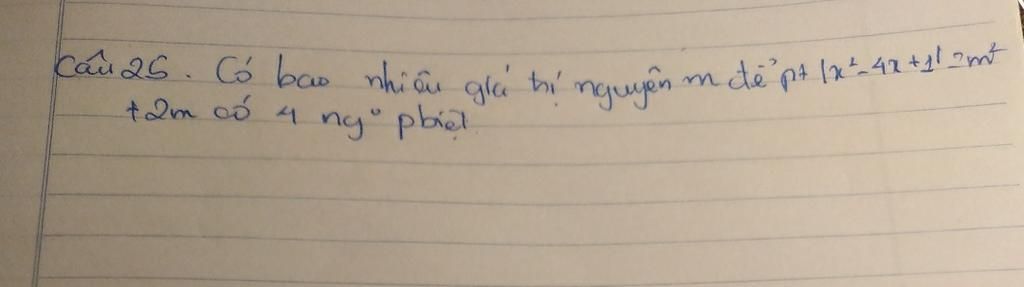 Câu 25. Có bao nhiêu giá trị nguyên m để pt |x² - 4x + 1| = m²
+ 2m có 4 ng° pbiệt